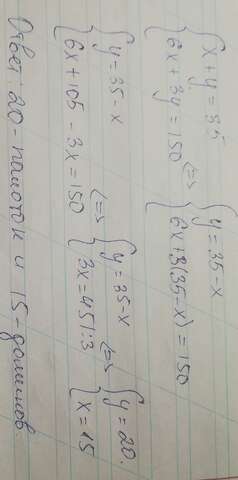 { x + y = 35
{ 6x + 3y = 150 <=> { y = 35 - x
{ 6x + 3(35 - x) = 150
{ y = 35 - x
{ 6x + 105 - 3x = 150 <=> { y = 35 - x
{ 3x = 45 | : 3 <=> { y = 20.
{ x = 15
Ответ: 20 - молоток и 15 - домиков.